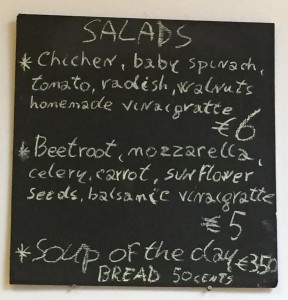 SALADS
* Chicken, baby spinach,
tomato, radish, walnuts
homemade vinaigratte
€6
* Beetroot, mozzarella,
celery, carrot, sunflower
seeds, balsamic vinaigratte
€5
* Soup of the day €3,50
BREAD 50 CENTS